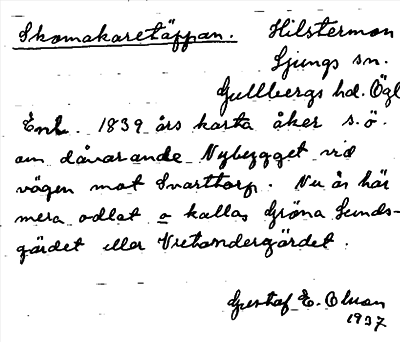 Skomakaretäppan. Hilstermon
Ljungs sn.
Gullbergs hd. Ögl
Enl. 1839 års karta åker s.ö.
om dåvarande Nybygget vid
vägen mot Svarttorp. Nu är här
mera odlat o kallas Gröna Lunds-
gärdet eller Vretondergärdet.
Gustaf E. Olson
1937